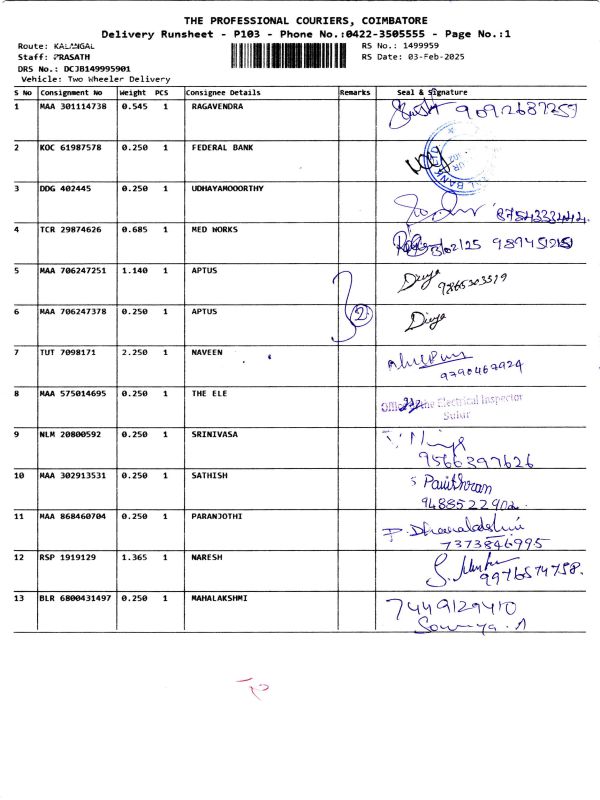 THE PROFESSIONAL COURIERS, COIMBATORE
Delivery Runsheet - P103 - Phone No.:0422-3505555 - Page No.:1
Route: KALANGAL RS No.: 1499959
Staff: PRASATH RS Date: 03-Feb-2025
DRS No.: DCJB149995901
Vehicle: Two Wheeler Delivery
S No Consignment No Weight PCS Consignee Details Remarks Seal & Signature
1 MAA 301114738 0.545 1 RAGAVENDRA 9092687257
2 KOC 61987578 0.250 1 FEDERAL BANK
3 DDG 402445 0.250 1 UDHAYAMOOORTHY
4 TCR 29874626 0.685 1 MED WORKS
5 MAA 706247251 1.140 1 APTUS Divya
6 MAA 706247378 0.250 1 APTUS 2 Divya
7 TUT 7098171 2.250 1 NAVEEN
9790467924
8 MAA 575014695 0.250 1 THE ELE the Electrical Inspector
Sulur
9 NLM 20800592 0.250 1 SRINIVASA
9566397626
10 MAA 302913531 0.250 1 SATHISH S Pavithran
9488522902
11 MAA 868460704 0.250 1 PARANJOTHI
7373846995
12 RSP 1919129 1.365 1 NARESH
9976574758.
13 BLR 6800431497 0.250 1 MAHALAKSHMI 7449129410
Sowmya.A